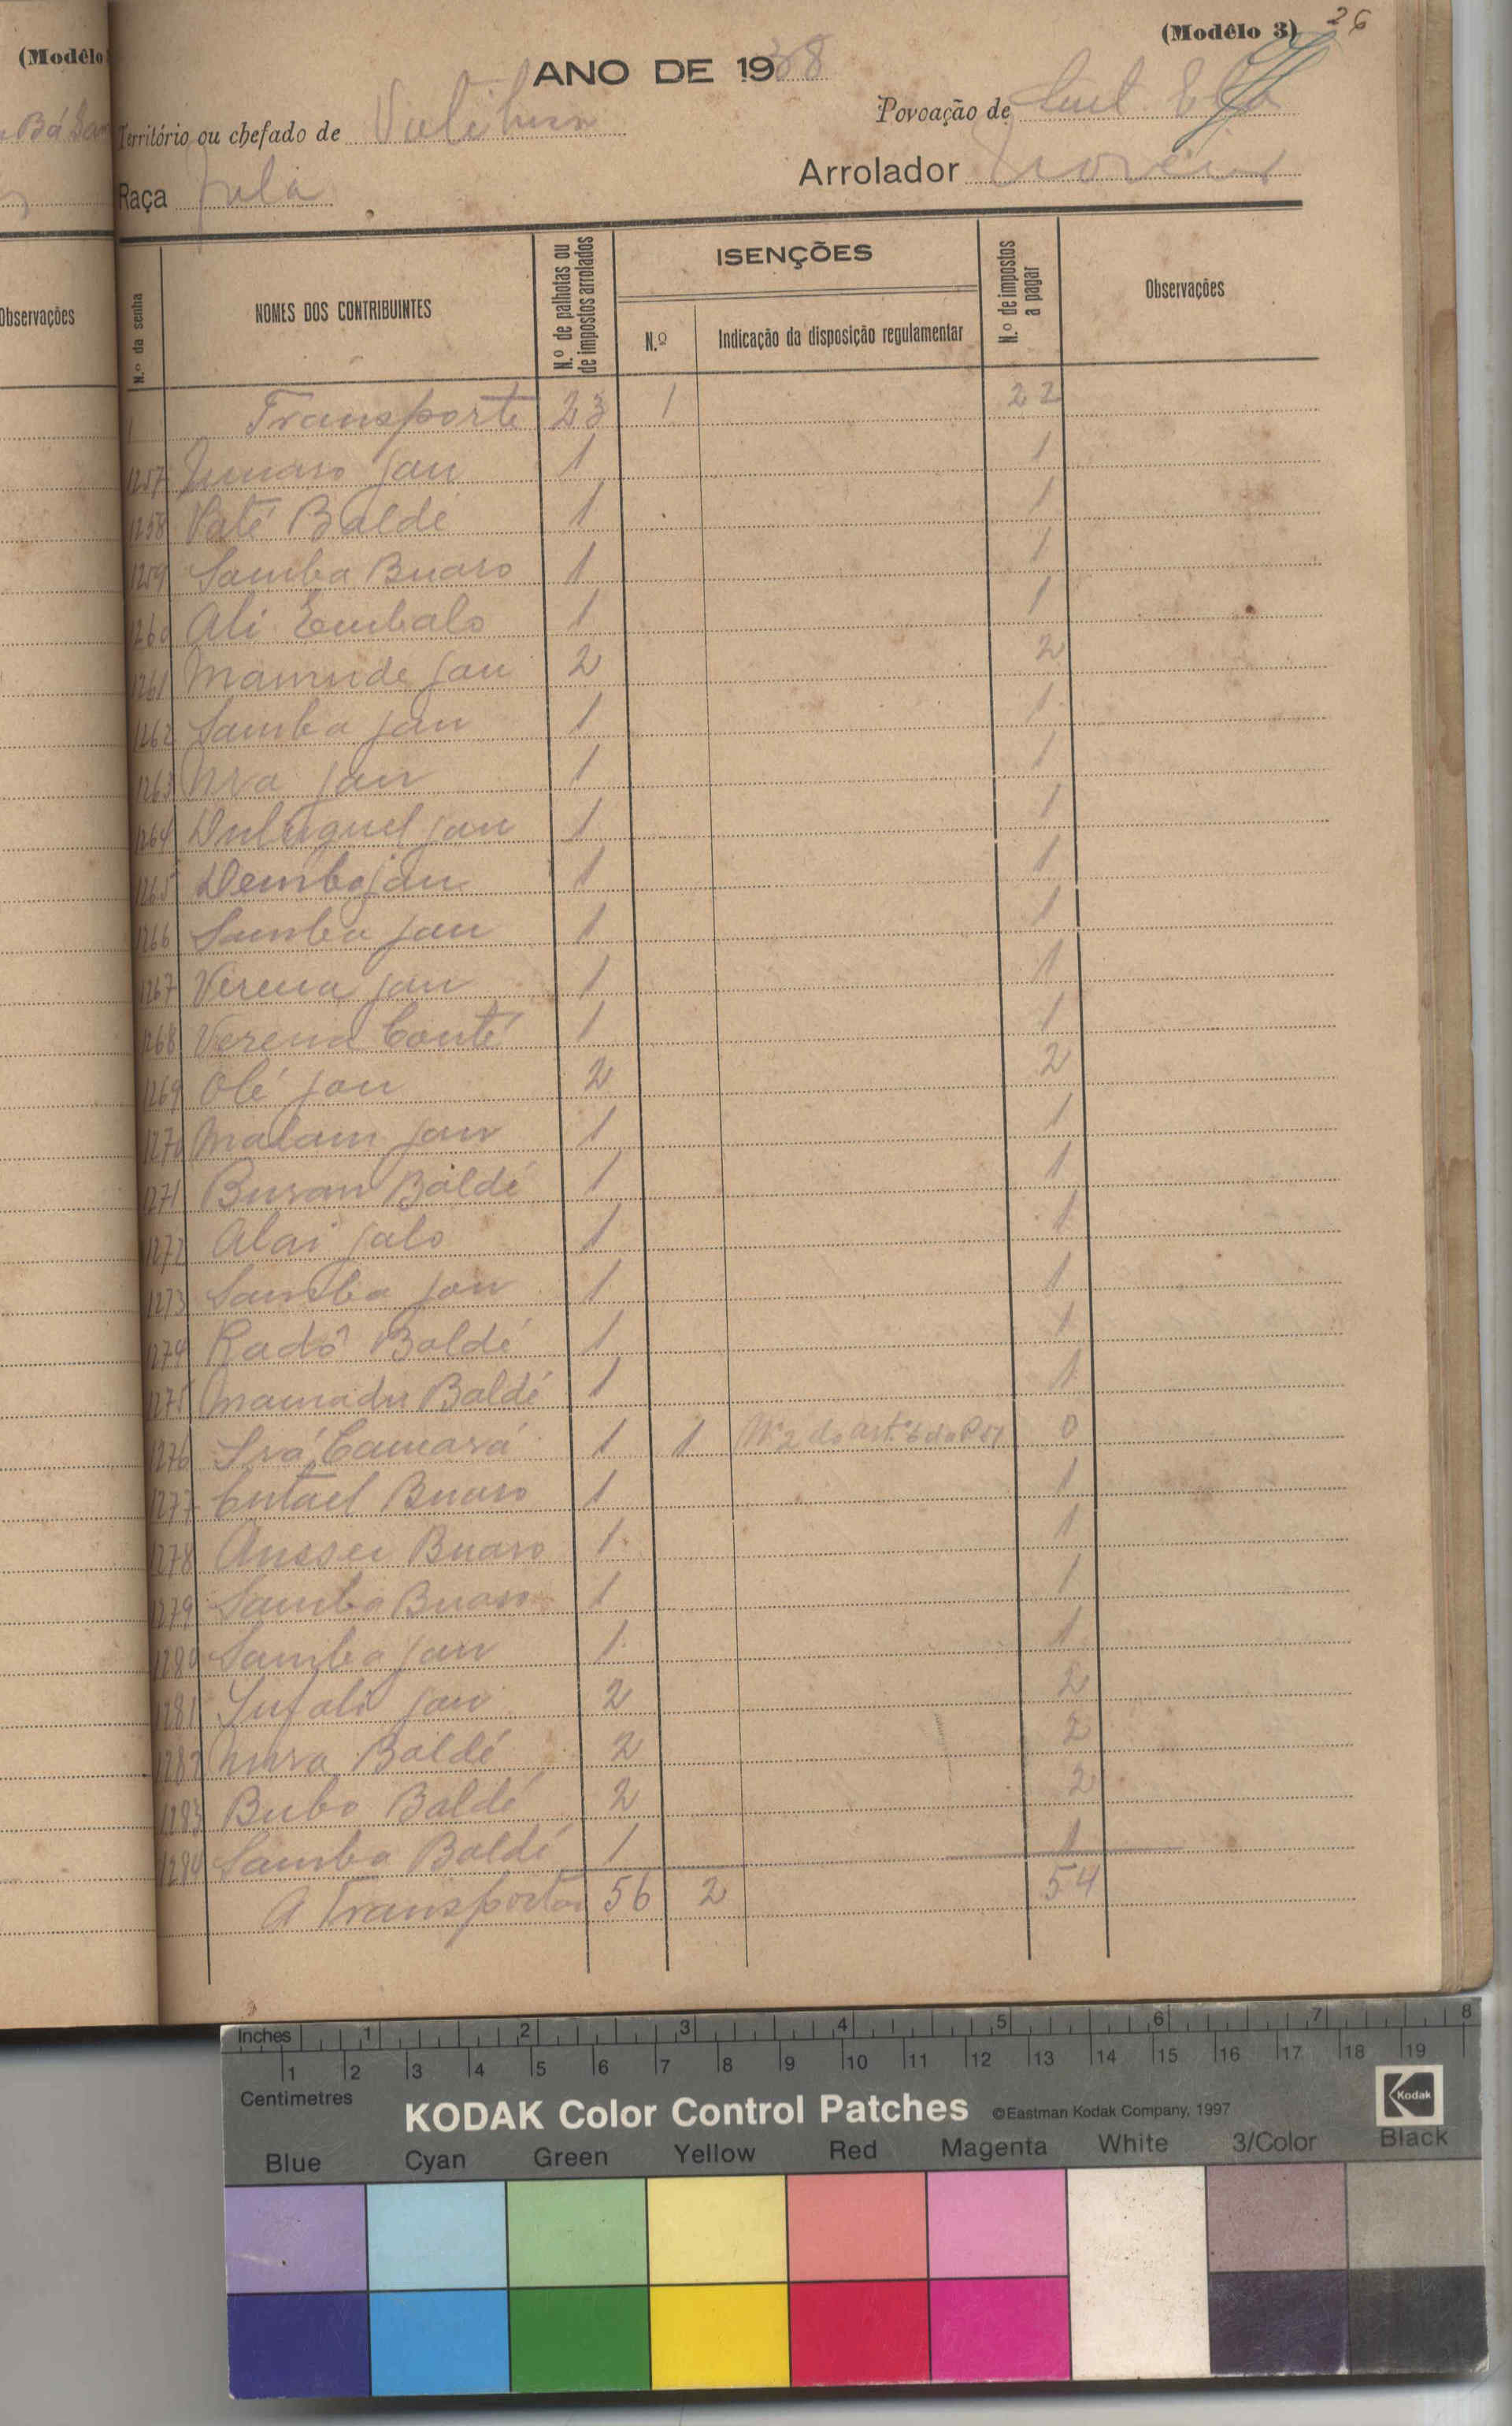 (Modêlo
(Modêlo 3)
26
ANO DE 1938
Território ou chefado de
Povoação de
Raça Fula
Arrolador
Observações
N.º da senha
NOMES DOS CONTRIBUINTES
N.º de palhotas ou de impostos arrolados
ISENÇÕES
N.º
Indicação da disposição regulamentar
N.º de impostos a pagar
Observações
Transporte 23 1 22
1257 Jau 1 1
1258 Paté Baldé 1 1
1259 Samba Buaro 1 1
1260 Ali Embalo 1 1
1261 Mamude Jau 2 2
1262 Samba Jau 1 1
1263 Jau 1 1
1264 Jau 1 1
1265 Demba Jau 1 1
1266 Samba Jau 1 1
1267 Verena Jau 1 1
1268 Verena Conté 1 1
1269 Olé Jau 2 2
1270 Malam Jau 1 1
1271 Buran Baldé 1 1
1272 Alai Jalo 1 1
1273 Samba Jau 1 1
1274 Radô Baldé 1 1
1275 Mamadu Baldé 1 1
1276 Camará 1 1 Nº 2 do artº 6 do 0
1277 Cutael Buaro 1 1
1278 Buaro 1 1
1279 Samba Buaro 1 1
1280 Samba Jau 1 1
1281 Jau 2 2
1282 Baldé 2 2
1283 Bubo Baldé 2 2
1284 Samba Baldé 1 1
A Transportar 56 2 54
Inches 1 2 3 4 5 6 7 8
1 2 3 4 5 6 7 8 9 10 11 12 13 14 15 16 17 18 19
Centimetres
KODAK Color Control Patches ©Eastman Kodak Company, 1997 Kodak
Blue Cyan Green Yellow Red Magenta White 3/Color Black